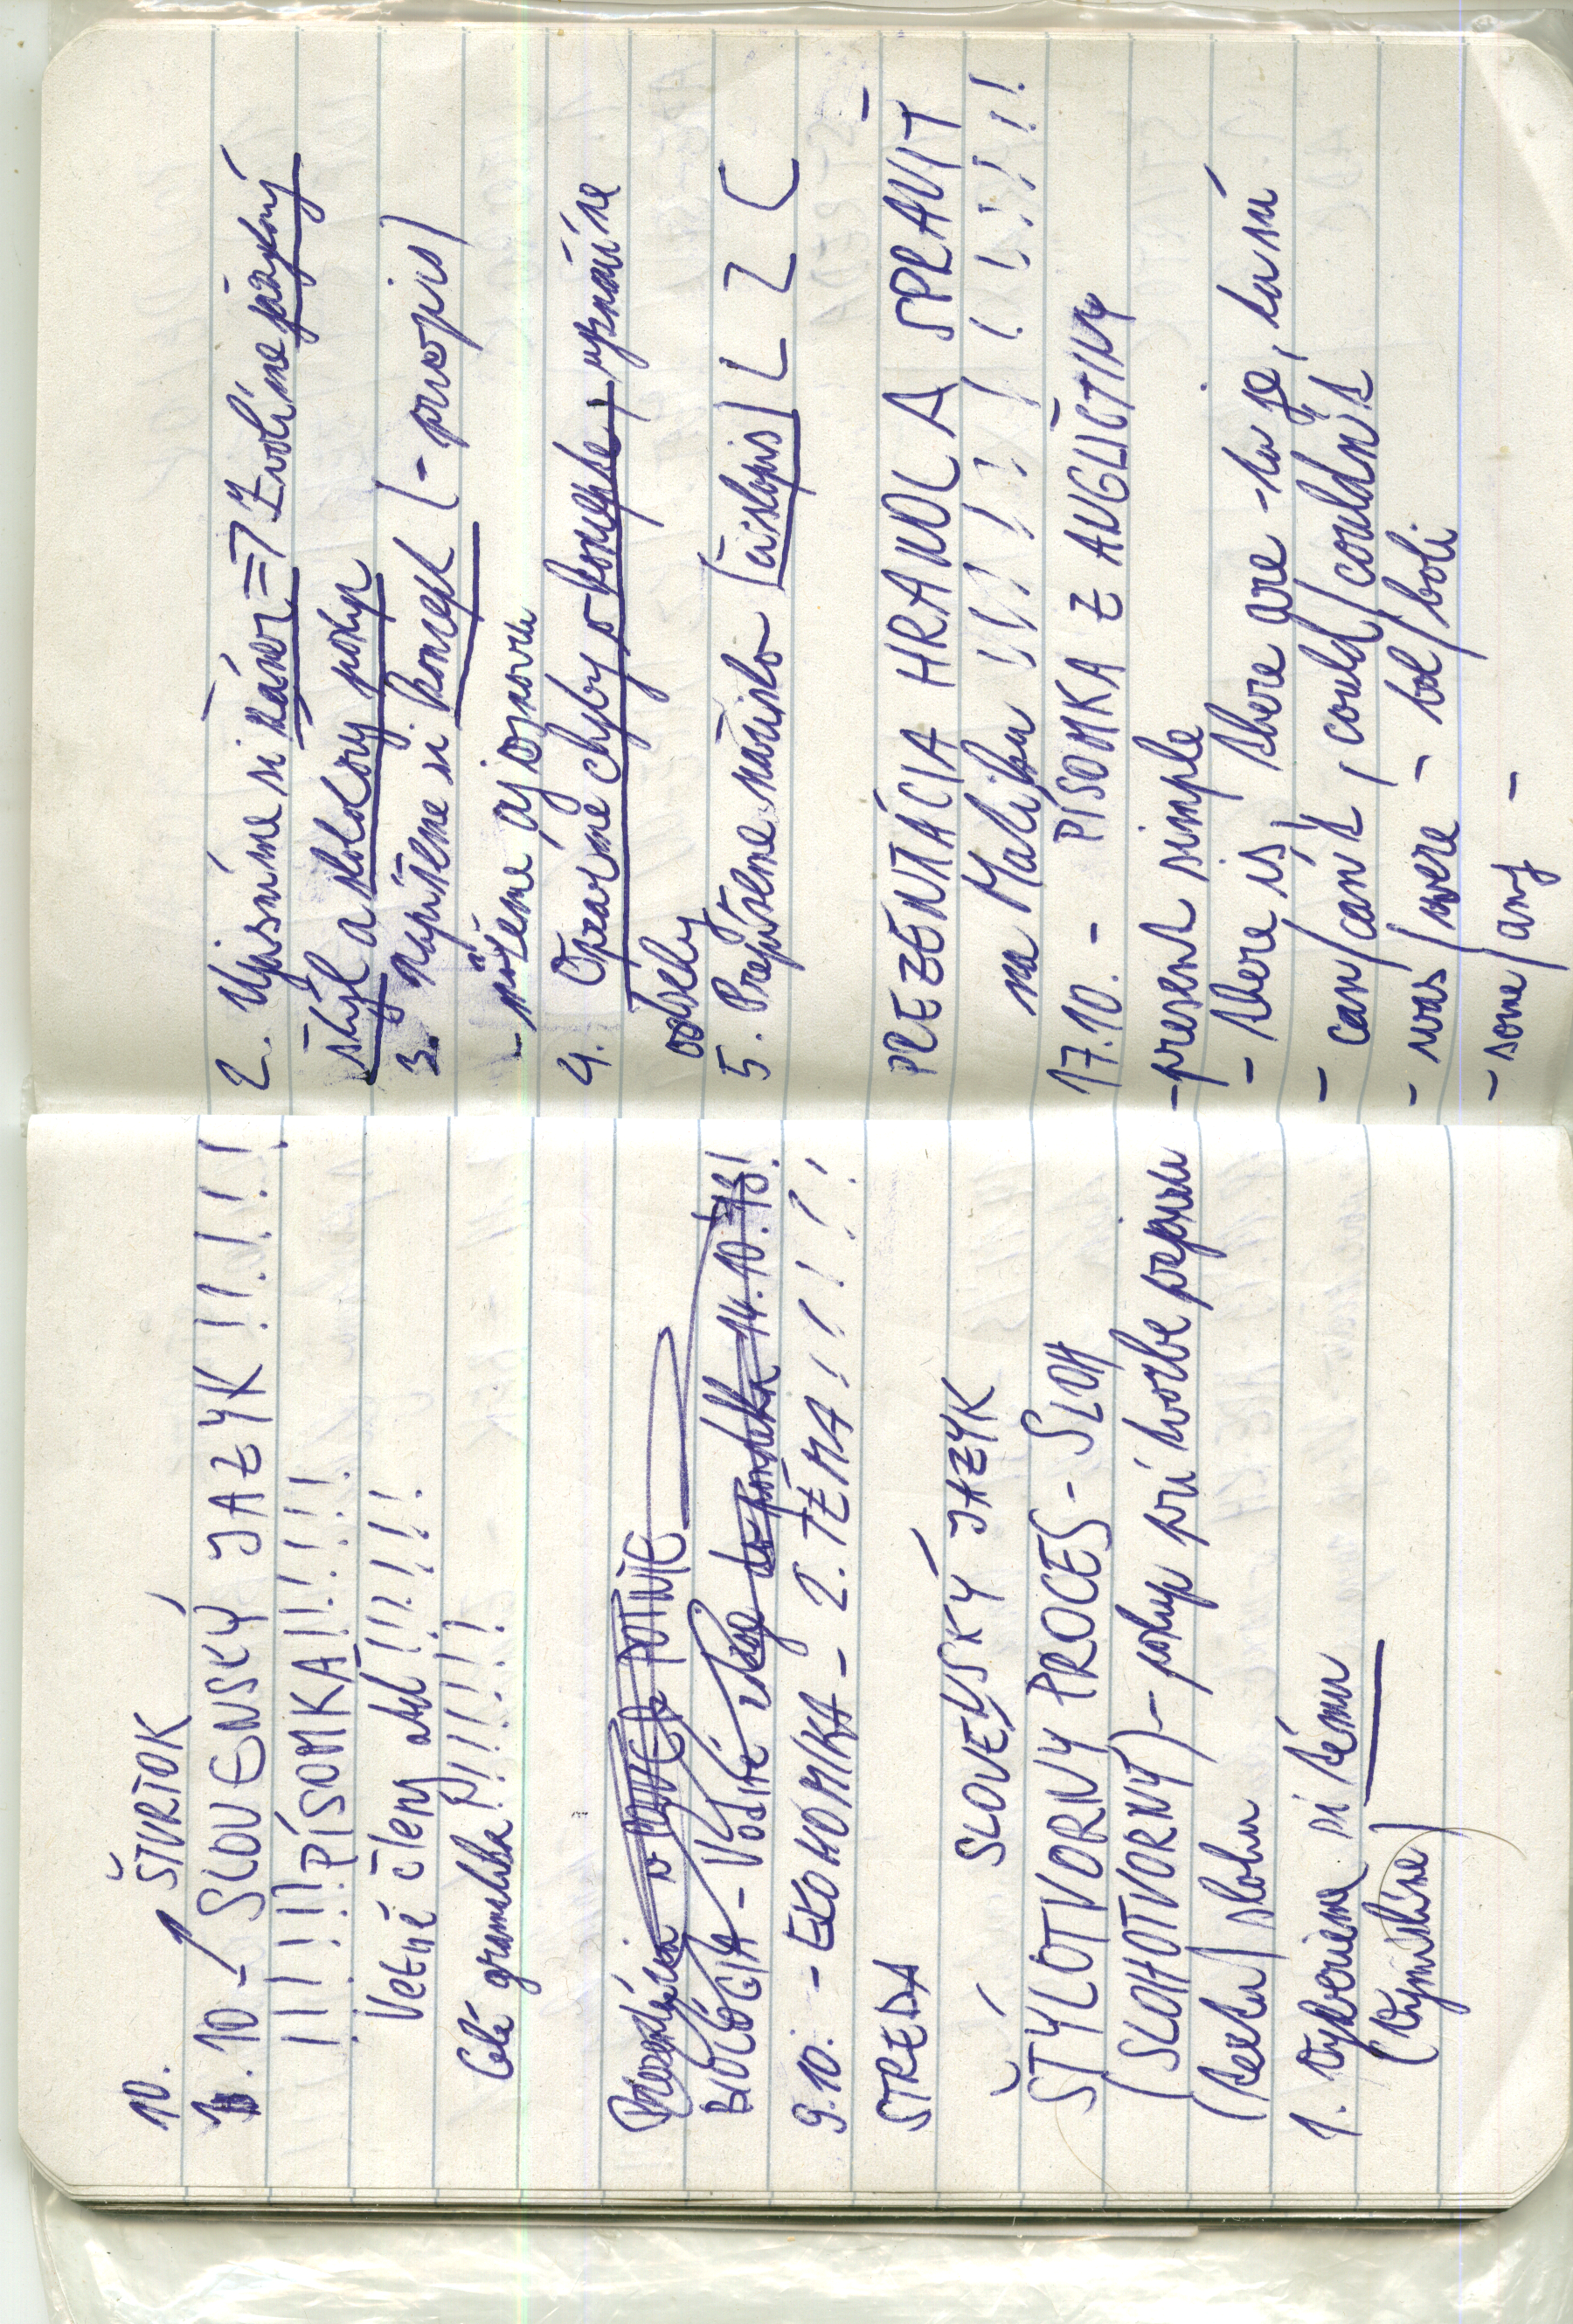 10. ŠTVRTOK
10. 10 - SLOVENSKÝ JAZYK!!!!!
!!!!! PÍSOMKA!!!!!!!
Vetné členy atd!!!!!!
Celá gramatika!!!!!!
BIOLÓGIA - Vodné
9.10. - EKONOMIKA - 2. TÉMA!!!!!!
STREDA
SLOVENSKÝ JAZYK
ŠTÝLOTVORNÝ PROCES - SLOH
(SLOHOTVORNÝ) - postup pri tvorbe
(textu) slohu
1. Vyberieme si tému
(Vymyslíme)
2. Ujasníme si námet => Zvolíme jazykový
štýl a slohový postup
3. napíšeme si koncept (- prvopis)
- píšeme aj osnovu
4. Opravíme chyby v koncepte,
odseky
5. Prepíšeme načisto (čistopis)
PREZENTÁCIA HRANOLA SPRAVIŤ
na Malíčku !!!!!!!!!!!!
17.10. - PÍSOMKA Z ANGLIČTINY
- present simple
- there is, there are - tu je, tu sú
- can/can't, could/couldn't
- was/were - bol/boli
- some/any -